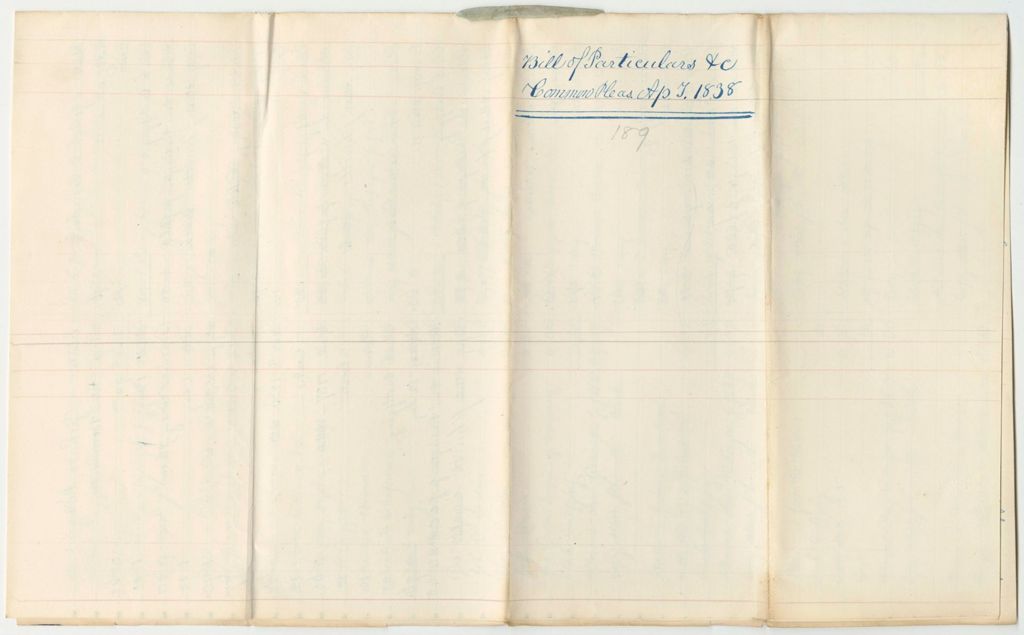 Bill of Particulars &c
Common Pleas Ap T. 1838
189